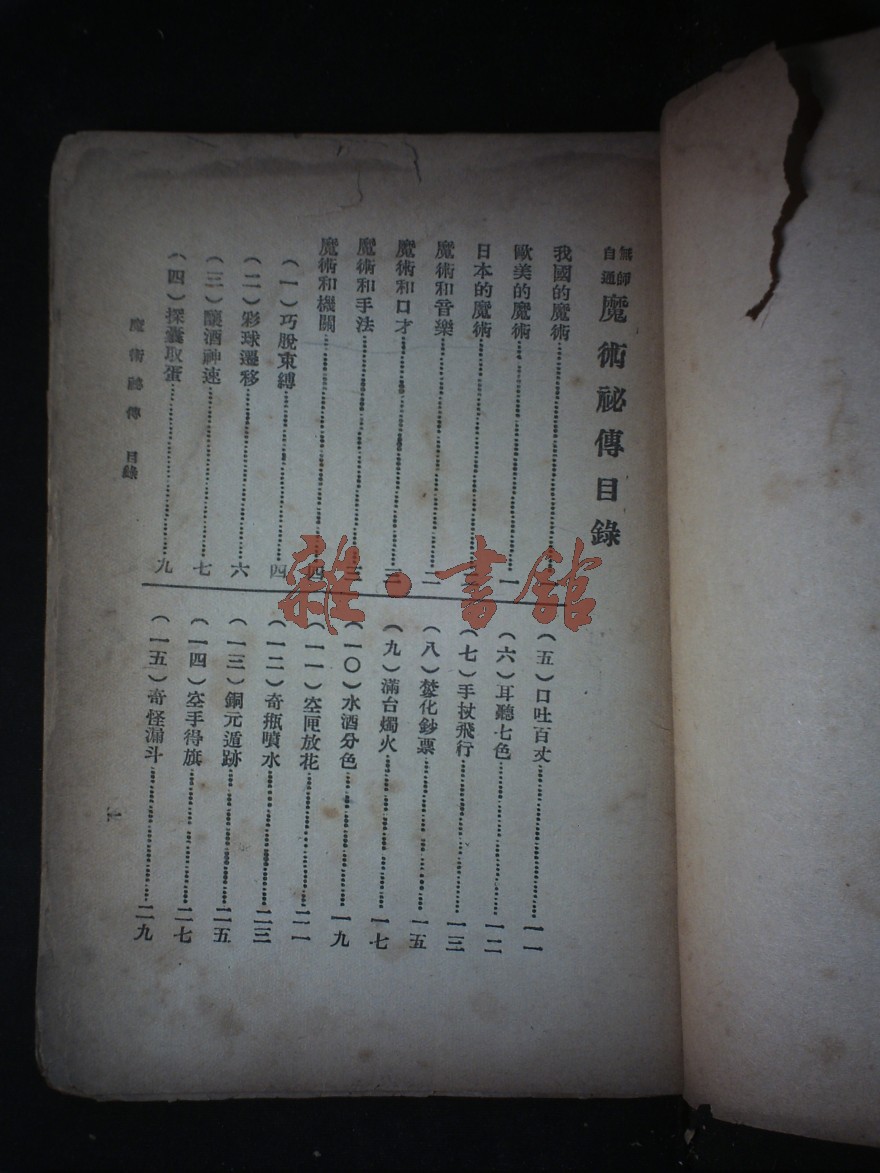 無師自通 魔術祕傳目錄
我國的魔術
歐美的魔術……一
日本的魔術
魔術和音樂……二
魔術和口才……三
魔術和手法……三
魔術和機關……四
（一）巧脫束縛……四
（二）彩球遷移……六
（三）釀酒神速……七
（四）探囊取蛋……九
（五）口吐百丈……一一
（六）耳聽七色……一二
（七）手杖飛行……一三
（八）焚化鈔票……一五
（九）滿台燭火……一七
（一〇）水酒分色……一九
（一一）空匣放花……二一
（一二）奇瓶噴水……二三
（一三）銅元遁跡……二五
（一四）空手得旗……二七
（一五）奇怪漏斗……二九
魔術祕傳 目錄
一
雜·書館